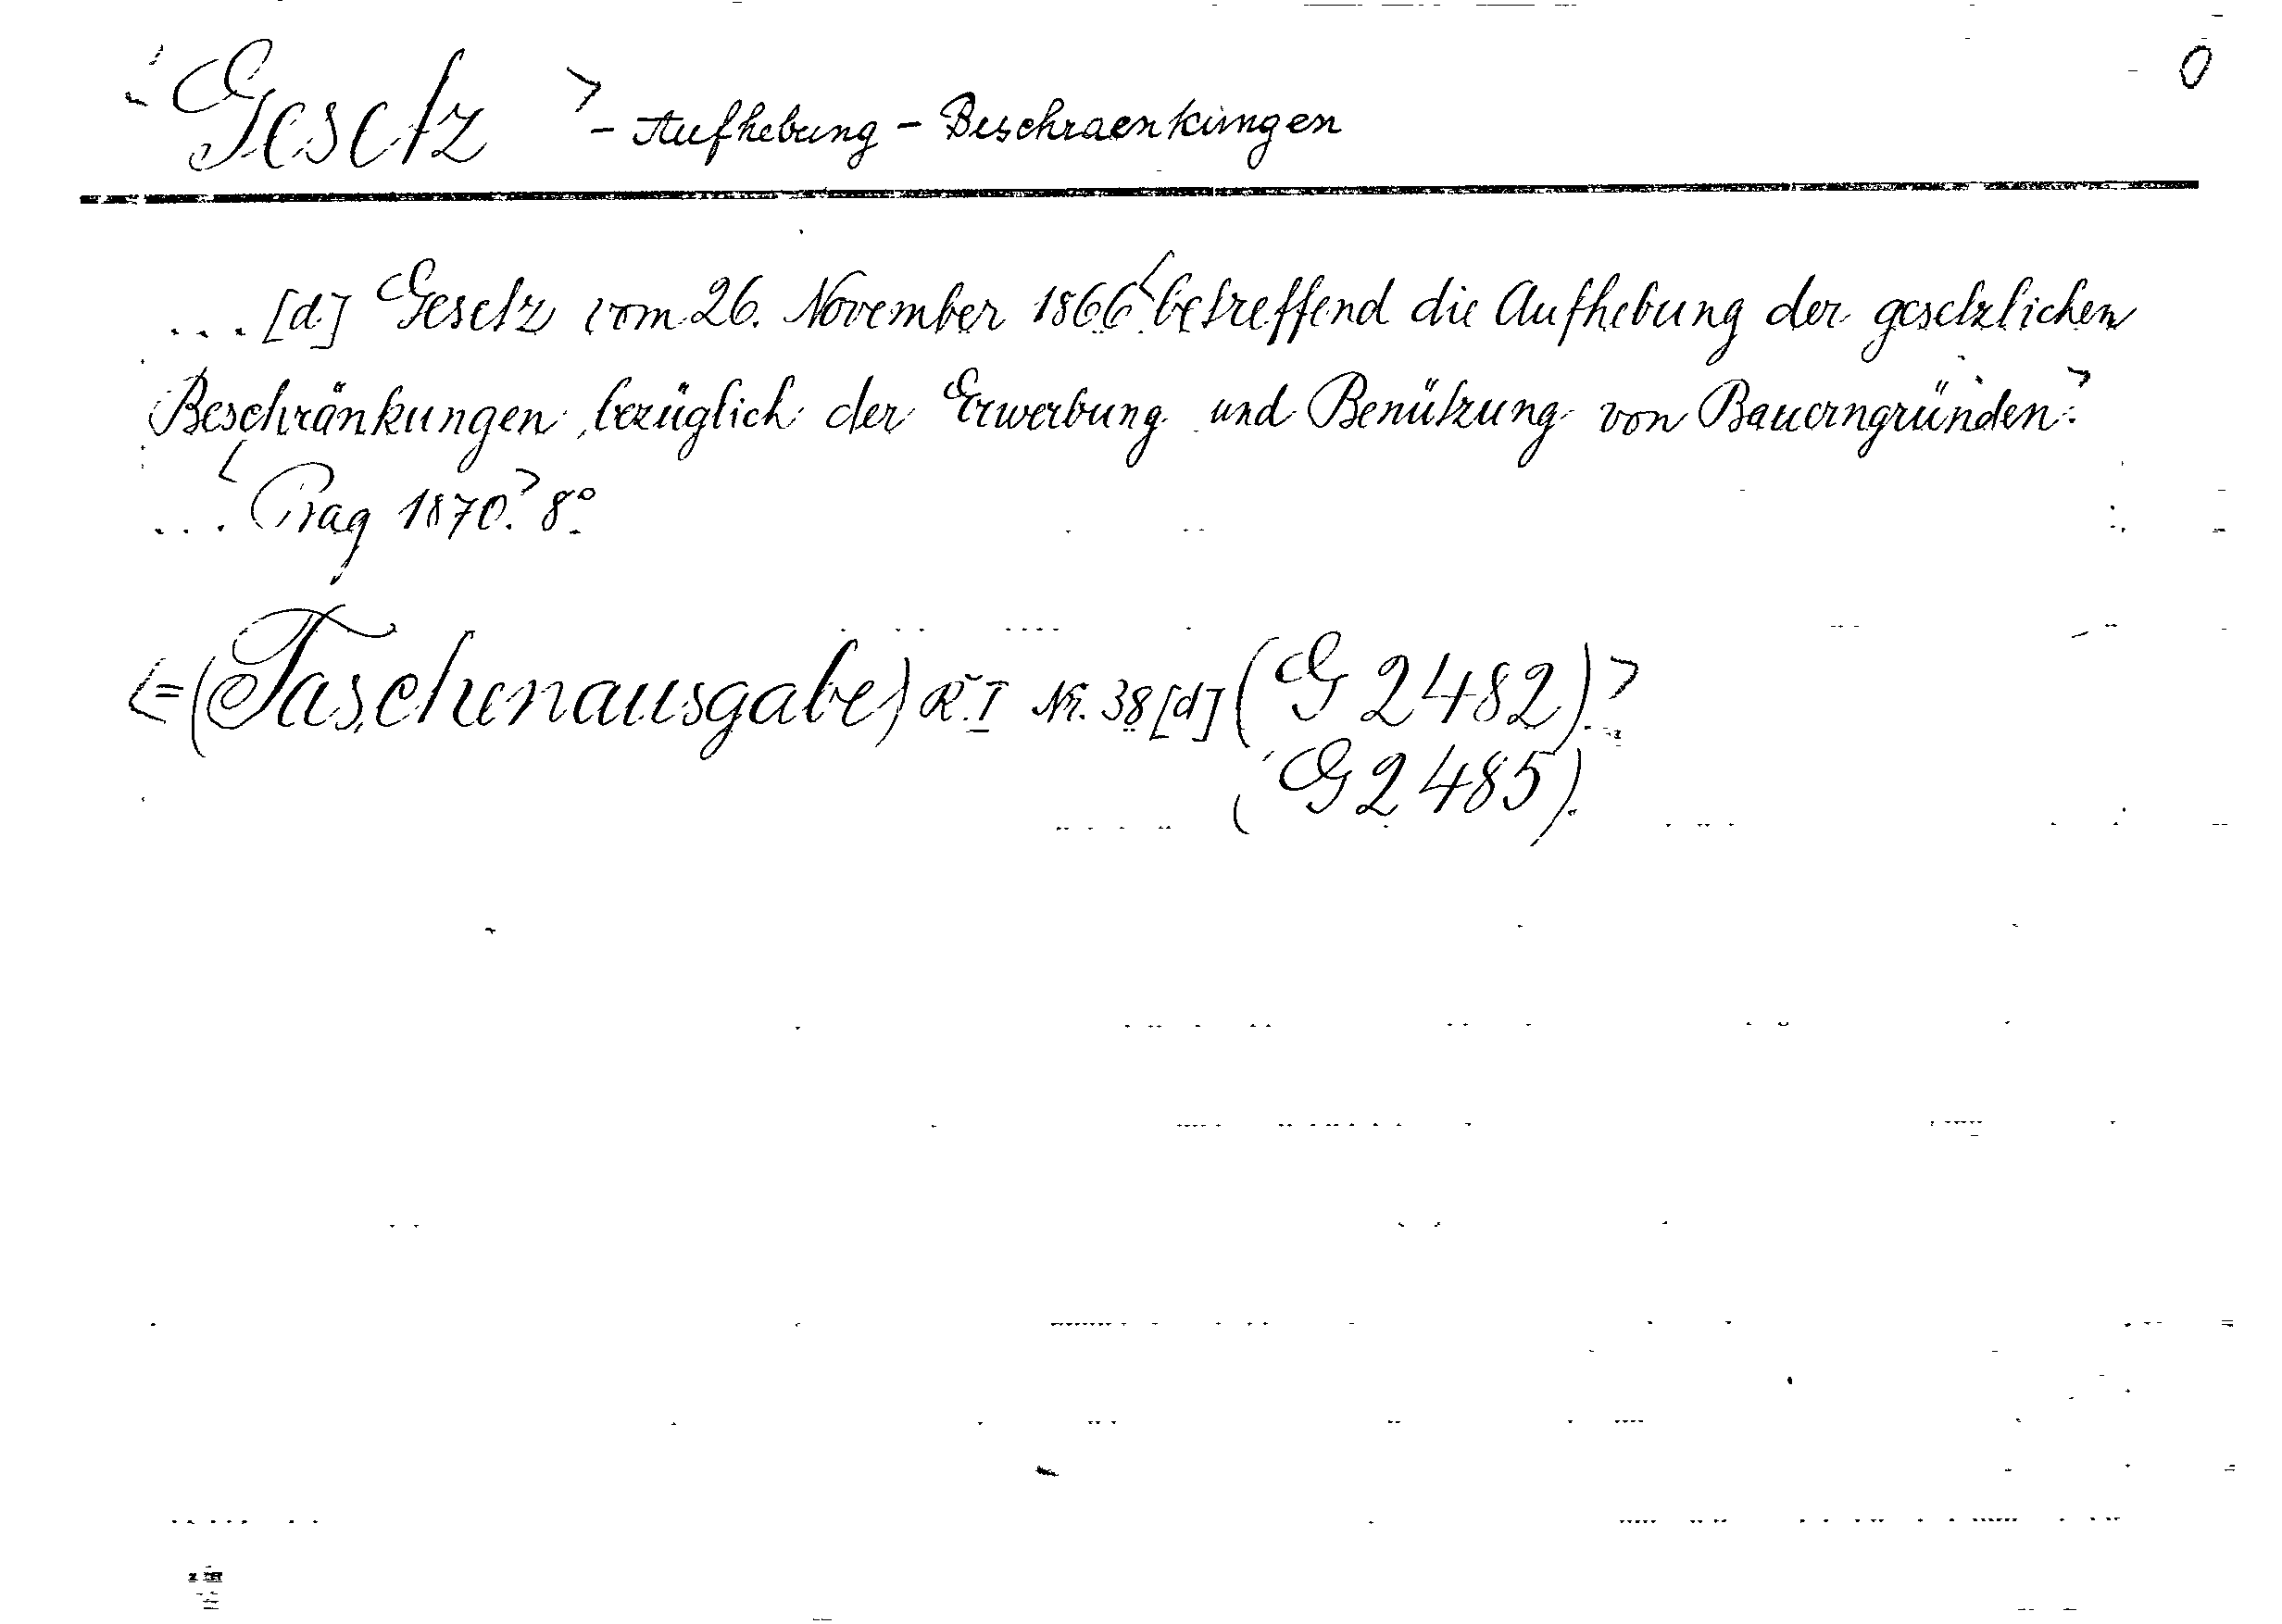 <Gesetz> - Aufhebung - Beschraenkungen 0
... [d] Gesetz vom 26. November 1866 <betreffend die Aufhebung der gesetzlichen
Beschränkungen bezüglich der Erwerbung und Benützung von Bauerngründen.>
... <Prag 1870.> 8°.
<=(Taschenausgabe) R. I Nr. 38 [d] (G 2482).>
(G 2485).